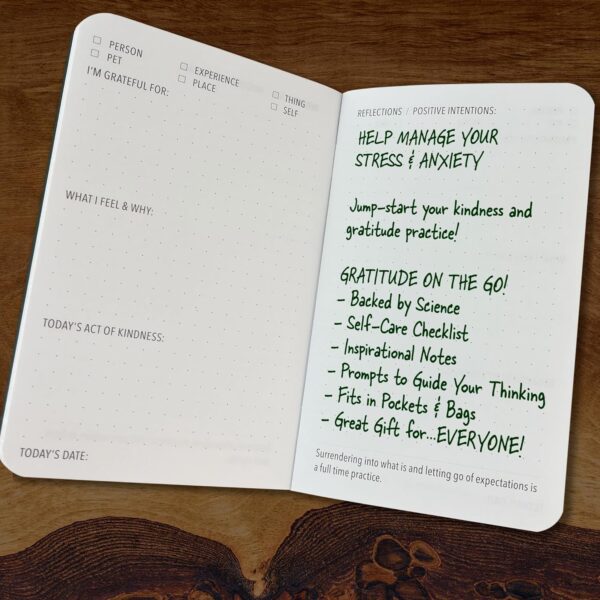 ☐ PERSON ☐ EXPERIENCE ☐ THING
☐ PET ☐ PLACE ☐ SELF
I'M GRATEFUL FOR:
WHAT I FEEL & WHY:
TODAY'S ACT OF KINDNESS:
TODAY'S DATE:
REFLECTIONS / POSITIVE INTENTIONS:
HELP MANAGE YOUR
STRESS & ANXIETY
Jump-start your kindness and
gratitude practice!
GRATITUDE ON THE GO!
- Backed by Science
- Self-Care Checklist
- Inspirational Notes
- Prompts to Guide Your Thinking
- Fits in Pockets & Bags
- Great Gift for...EVERYONE!
Surrendering into what is and letting go of expectations is
a full time practice.